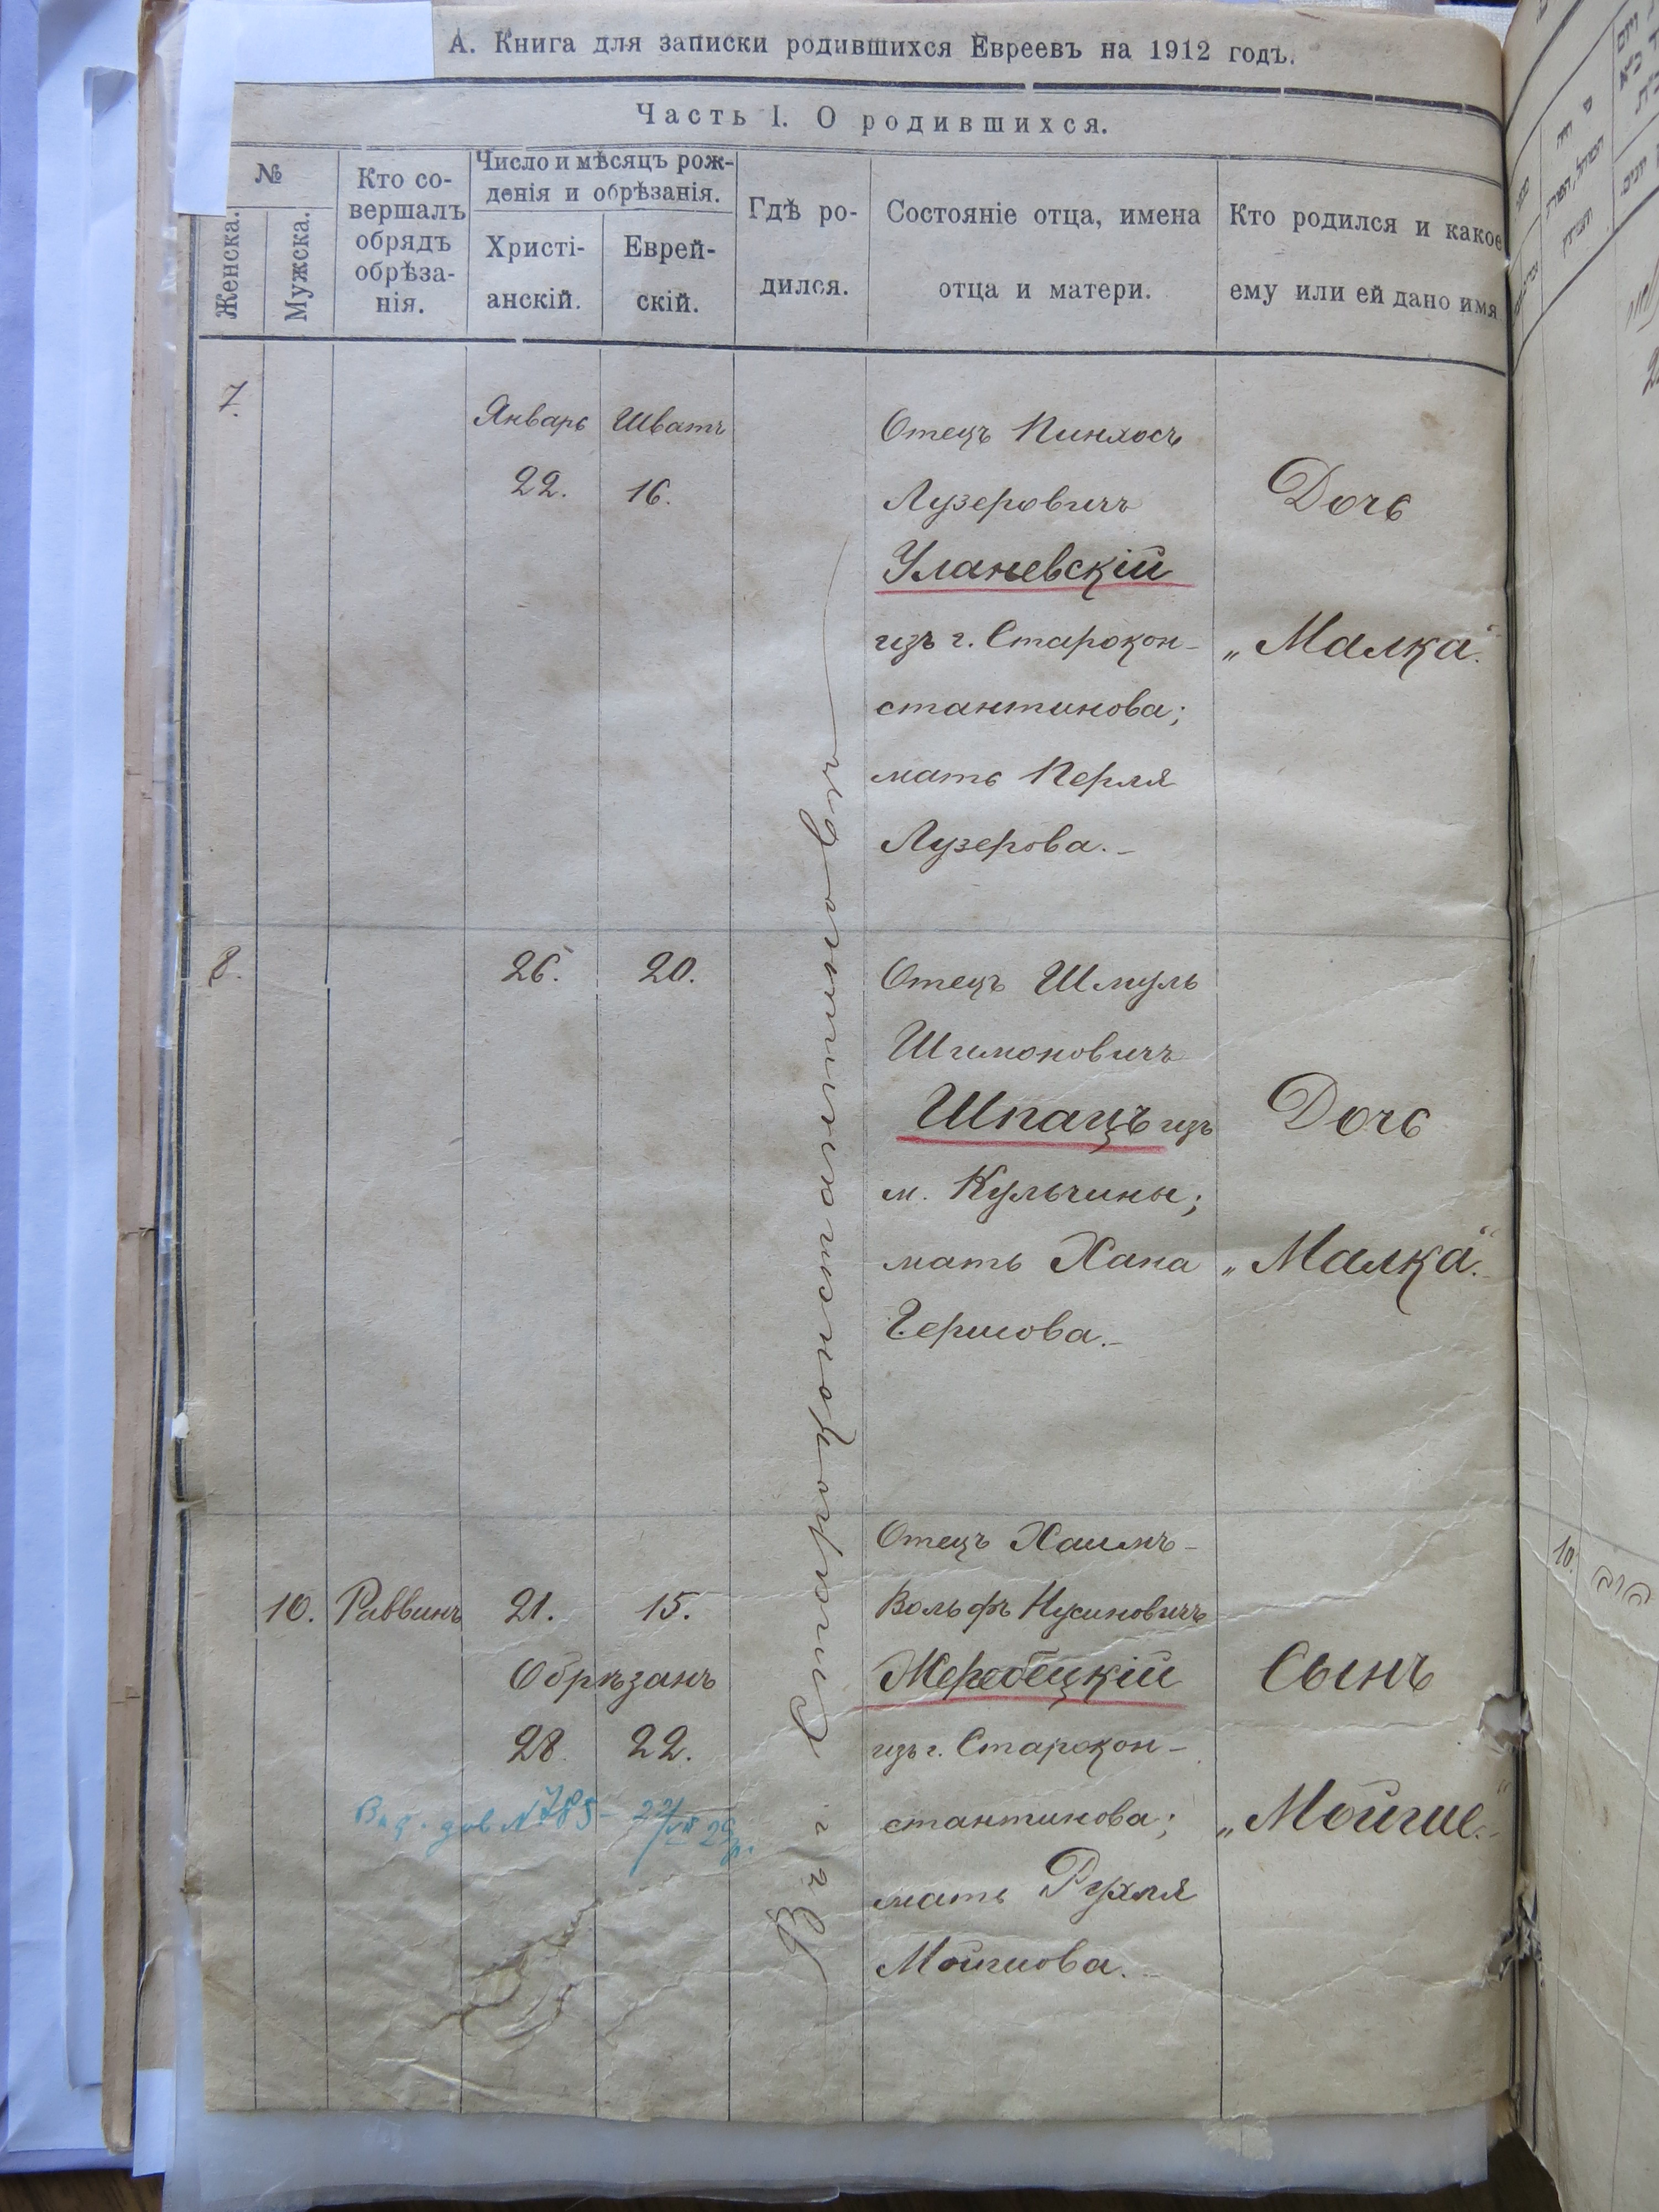 А. Книга для записки родившихся Евреевъ на 1912 годъ.
Часть I. О родившихся.
№
Женска.
Мужска.
Кто со-
вершалъ
обрядъ
обрѣза-
нія.
Число и мѣсяцъ рож-
денія и обрѣзанія.
Христі-
анскій.
Еврей-
скій.
Гдѣ ро-
дился.
Состояніе отца, имена
отца и матери.
Кто родился и какое
ему или ей дано имя
7.
Январь
22.
Шватъ
16.
Въ г. Староконстантиновѣ
Отецъ Пинхосъ
Лузеровичъ
Уланевскій
изъ г. Старокон-
стантинова;
мать Перля
Лузерова.-
Дочь
„Малка“.
8.
26.
20.
Отецъ Шмуль
Шимоновичъ
Шпацъ изъ
м. Кульчины;
мать Хана
Гершова.-
Дочь
„Малка“.-
10.
Раввинъ
21.
15.
Обрѣзанъ
28.
22.
Отецъ Хаимъ-
Вольфъ Нусиновичъ
Жеребецкій
изъ г. Старокон-
стантинова;
мать Рухля
Мойшова.-
Сынъ
„Мойше“.-
№ 785-
10.